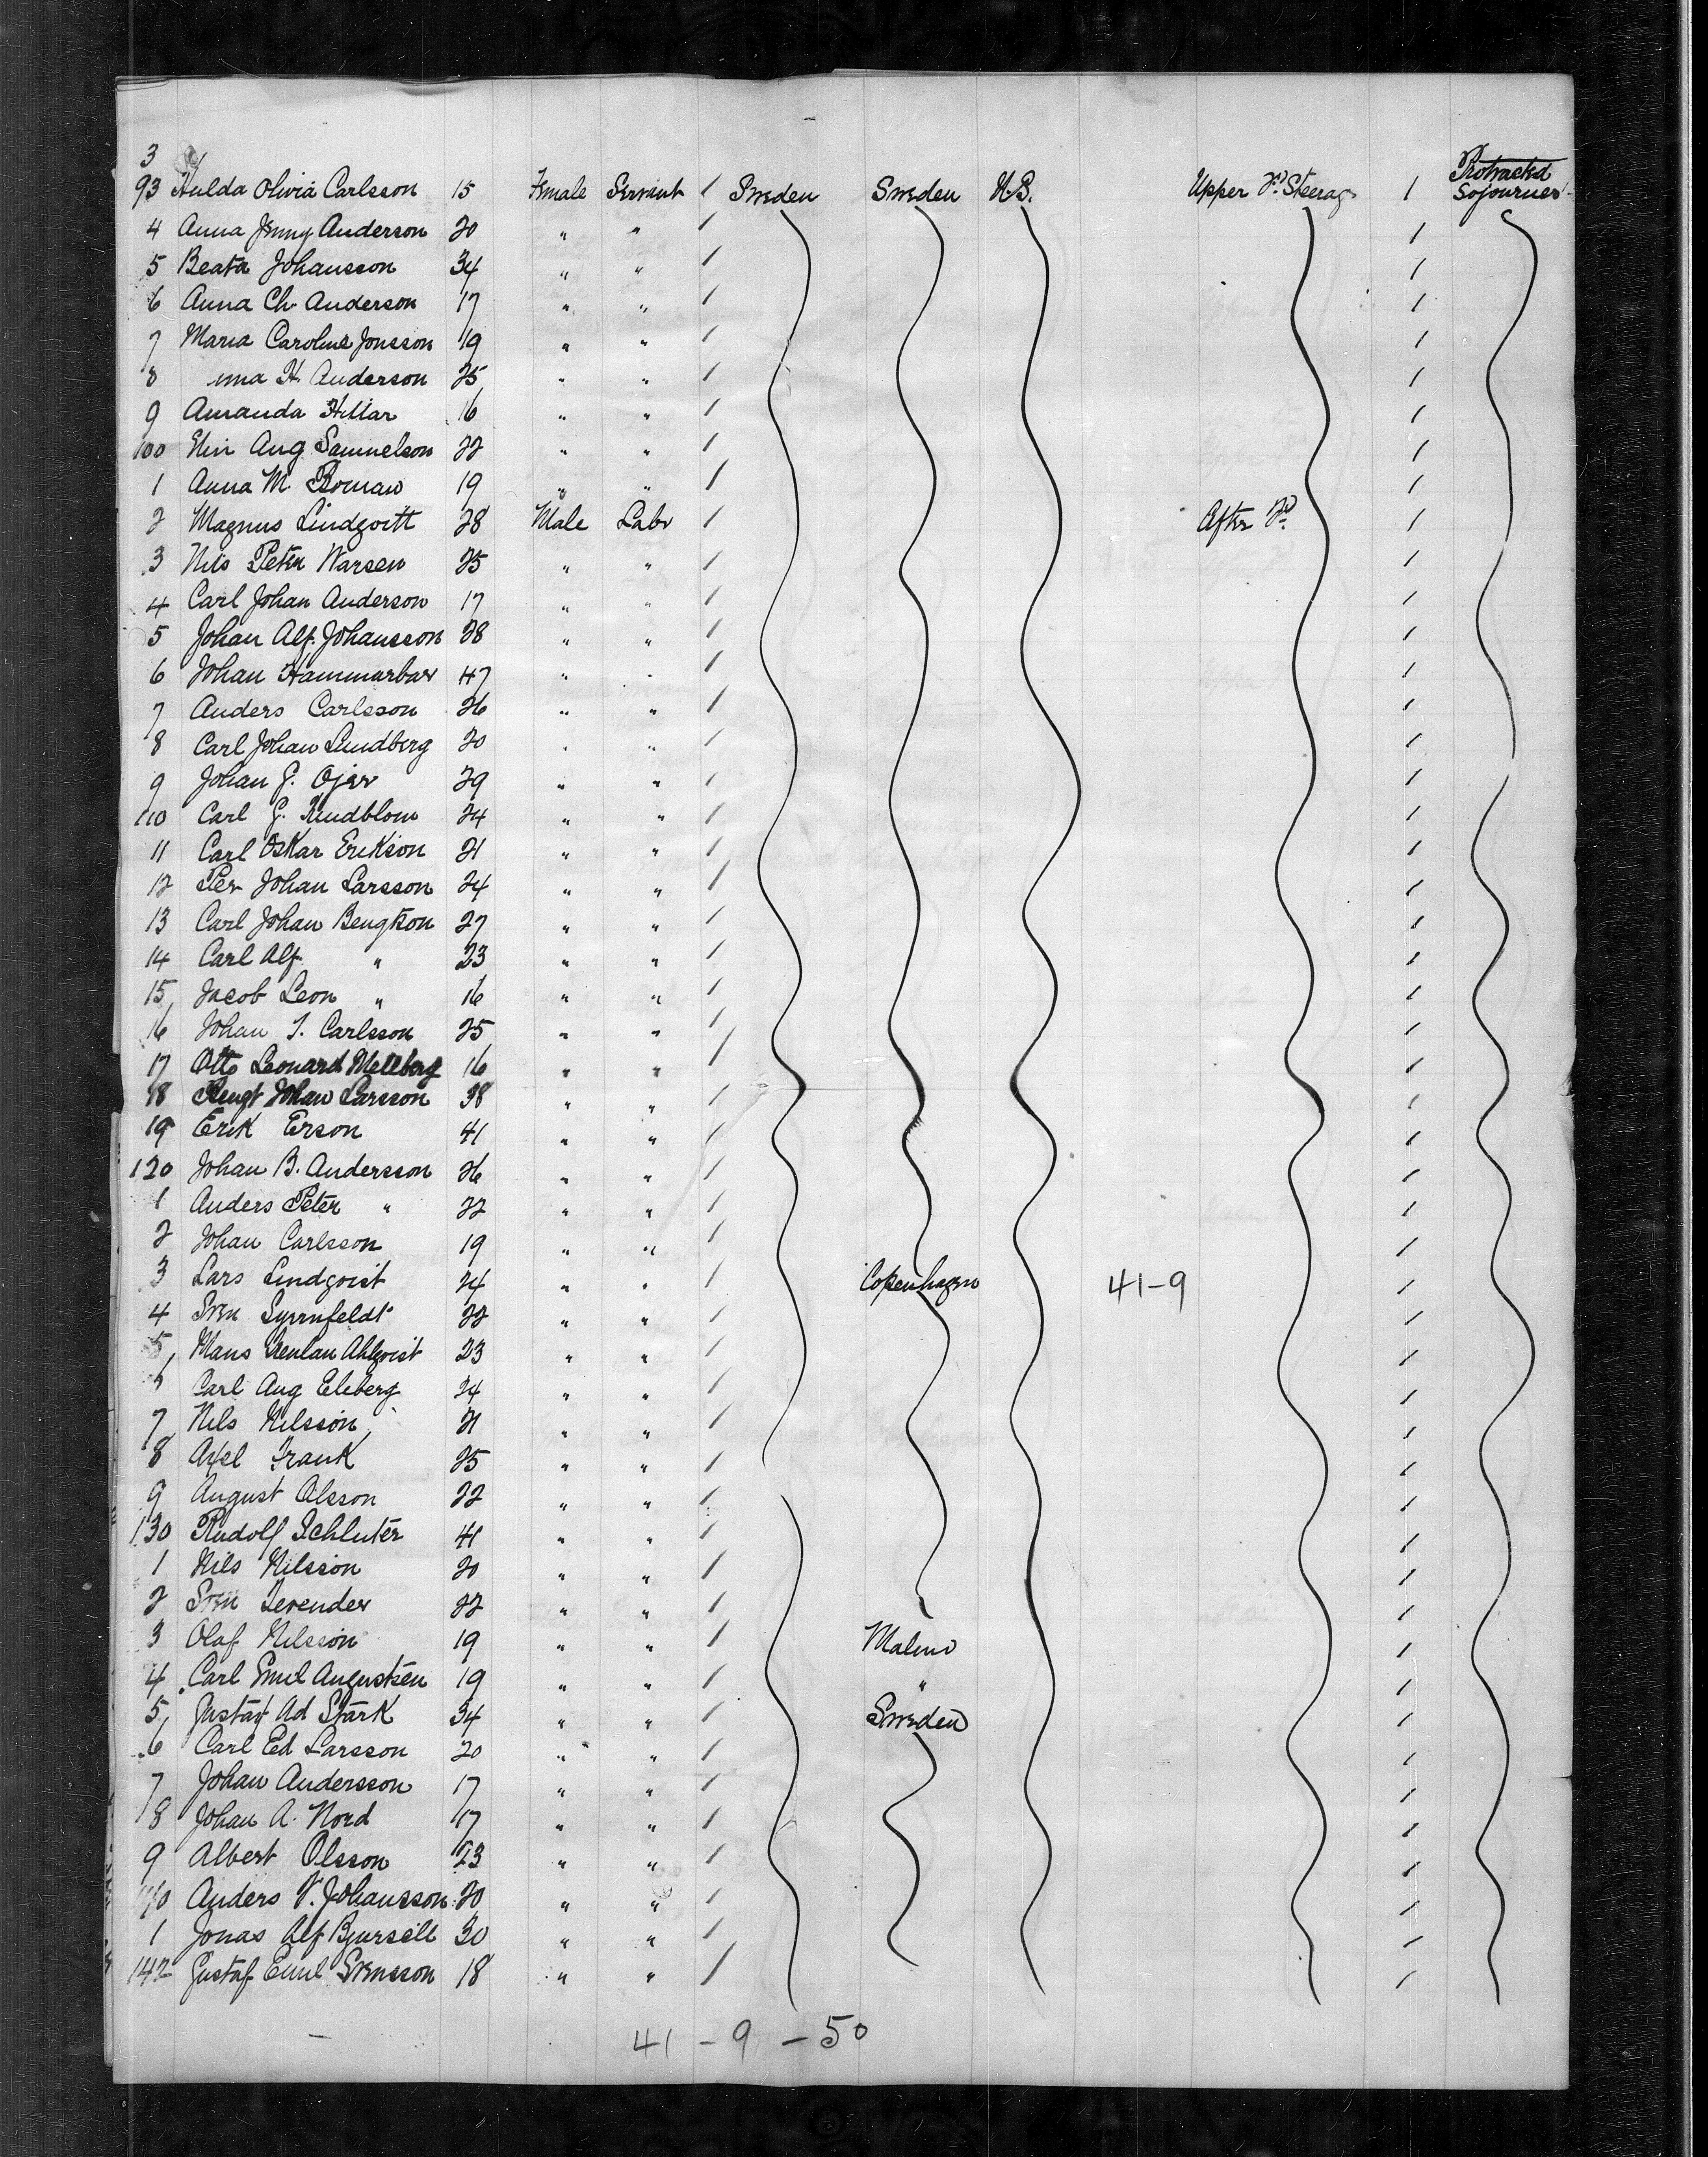 3
93 Hulda Olivia Carlsson 15 Female Servant / Sweden Sweden U.S. Upper Dk Steerag / Protracted Sojourner
4 Anna Jenny Anderson 20 " " / /
5 Beata Johansson 34 " " / /
6 Anna Ch Anderson 17 " " / /
7 Maria Caroline Jonsson 19 " " / /
8 nna H Anderson 25 " " / /
9 Amanda 16 " " / /
100 Elin Aug Samuelson 22 " " / /
1 Anna M. Boman 19 " " / /
2 Magnus 28 Male Labr / After Dk /
3 Nils Peter 25 " " / /
4 Carl Johan Anderson 17 " " / /
5 Johan Alf. Johansson 28 " " / /
6 Johan Hammarbar 47 " " / /
7 Anders Carlsson 26 " " / /
8 Carl Johan Lundberg 20 " " / /
9 Johan G. 29 " " / /
110 Carl G. 24 " " / /
11 Carl Oskar Erikson 21 " " / /
12 Per Johan Larsson 24 " " / /
13 Carl Johan Bengtson 27 " " / /
14 Carl Alf. " 23 " " / /
15 Jacob Leon " 16 " " / /
16 Johan T. Carlsson 25 " " / /
17 Otto Leonard Mellberg 16 " " / /
18 Bengt Johan Larsson 38 " " / /
19 Erik Erson 41 " " / /
120 Johan B. Andersson 26 " " / /
1 Anders Peter " 22 " " / /
2 Johan Carlsson 19 " " / /
3 Lars Lindqvist 24 " " / Copenhagen 41-9 /
4 Sven 22 " " / /
5 Mans Ahlqvist 23 " " / /
Carl Aug Eleberg 24 " " / /
7 Nils Nilsson 21 " " / /
8 Axel Frank 25 " " / /
9 August Olsson 22 " " / /
130 Rudolf Schluter 41 " " / /
1 Nils Nilsson 20 " " / /
2 Sven 22 " " / /
3 Olof Nilsson 19 " " / Malmo /
4 Carl Emil Augustsen 19 " " / " /
5 Gustaf Ad Stark 34 " " / Sweden /
6 Carl Ed Larsson 20 " " / /
7 Johan Andersson 17 " " / /
8 Johan A. Nord 17 " " / /
9 Albert Olsson 23 " " / /
140 Anders V. Johansson 20 " " / /
1 Jonas Alf Bjursell 30 " " / /
142 Gustaf Emil Svensson 18 " " / /
41 - 9 - 50